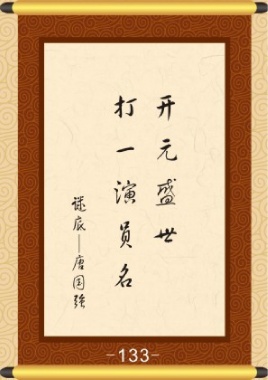 开元盛世
打一演员名
谜底——唐国强
-133-